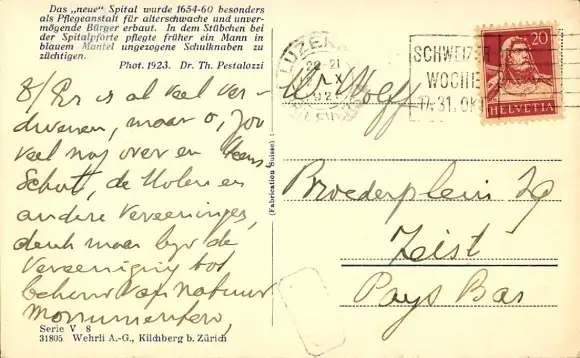 Das „neue" Spital wurde 1654-60 besonders
als Pflegeanstalt für alterschwache und unver-
mögende Bürger erbaut. In dem Stübchen bei
der Spitalpforte pflegte früher ein Mann in
blauem Mantel ungezogene Schulknaben zu
züchtigen.
Phot. 1923. Dr. Th. Pestalozzi
8/ Er is al veel ver-
dwenen, maar o, zoo
veel nog over en Heem
Schut, de Molen en
andere Vereeniningen,
denk maar bijv de
Vereeniging tot
behoud van natuur
monumenten,
Serie V 8
31805 Wehrli A.-G., Kilchberg b. Zürich
(Fabrication Suisse)
LUZERN
SCHWEIZER
WOCHE
17.-31. OKT
20
HELVETIA
Wolff
Broederplein 29
Zeist
Pays Bas